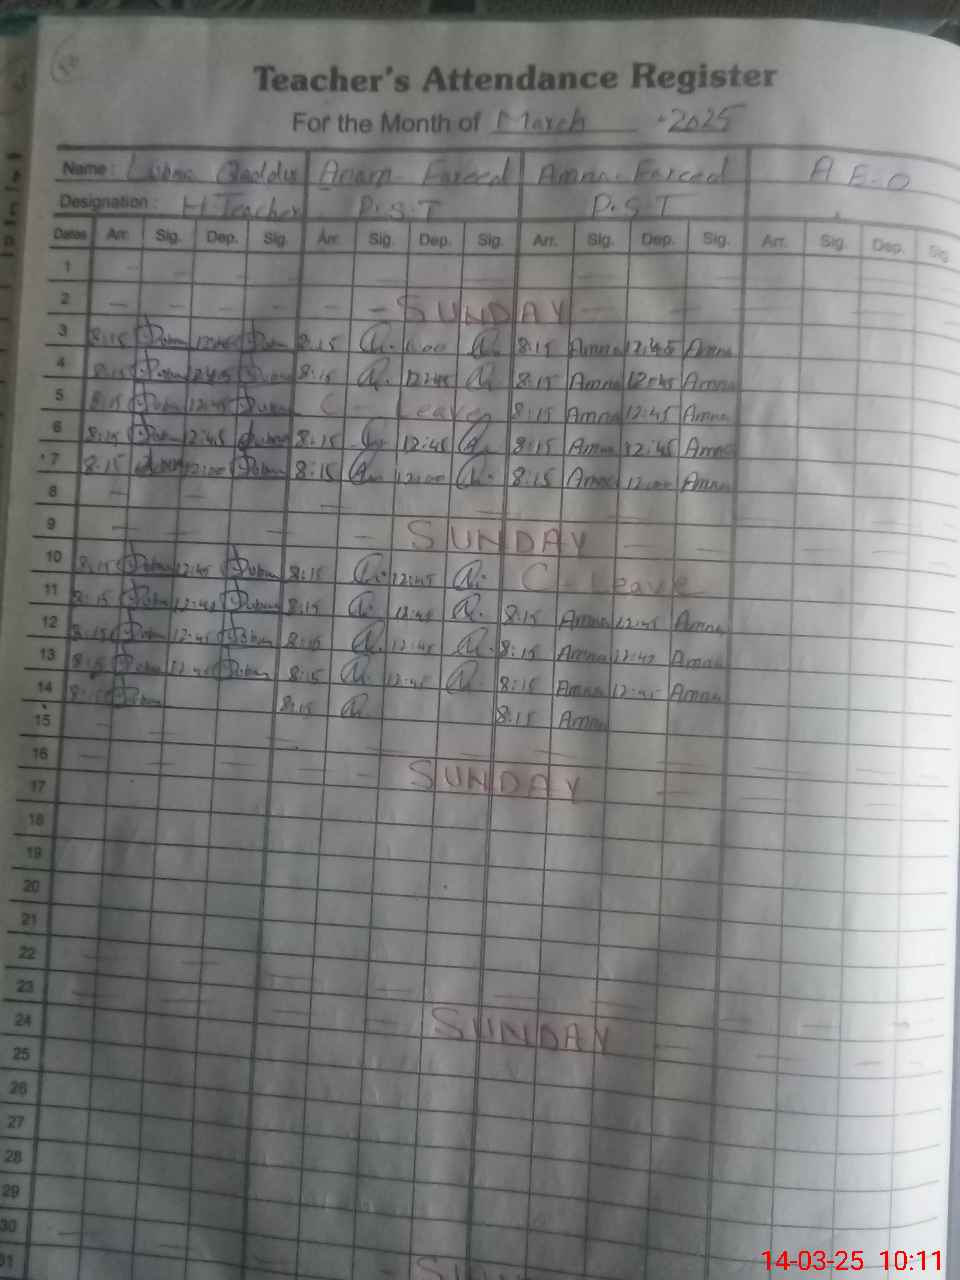 Teacher's Attendance Register
For the Month of March - 2025
Name: Lubna Anam Fareed Amna Fareed A E-O
Designation: H Teacher P.S.T P.S.T
Dates Arr. Sig. Dep. Sig. Arr. Sig. Dep. Sig. Arr. Sig. Dep. Sig. Arr. Sig. Dep. Sig.
1
2 SUNDAY
3 8:15 Lubna 12:45 Lubna 8:15 A. 1:00 A. 8:15 Amna 12:45 Amna
4 8:15 Lubna 12:45 Lubna 8:15 A. 12:45 A. 8:15 Amna 12:45 Amna
5 8:15 Lubna 12:45 Lubna C - Leave 8:15 Amna 12:45 Amna
6 8:15 Lubna 12:45 Lubna 8:15 12:45 A. 8:15 Amna 12:45 Amna
7 8:15 Lubna 12:00 Lubna 8:15 A. 12:00 A. 8:15 Amna 12:00 Amna
8
9 SUNDAY
10 8:15 Lubna 12:45 Lubna 8:15 A. 12:45 A. C - Leave
11 8:15 Lubna 12:45 Lubna 8:15 A. 12:45 A. 8:15 Amna 12:45 Amna
12 8:15 Lubna 12:45 Lubna 8:15 A. 12:45 A. 8:15 Amna 12:45 Amna
13 8:15 Lubna 12:45 Lubna 8:15 A. 12:45 A. 8:15 Amna 12:45 Amna
14 8:15 Lubna 8:15 A. 8:15 Amna
15
16 SUNDAY
17
18
19
20
21
22
23 SUNDAY
24
25
26
27
28
29
30
31 SUNDAY
14-03-25 10:11